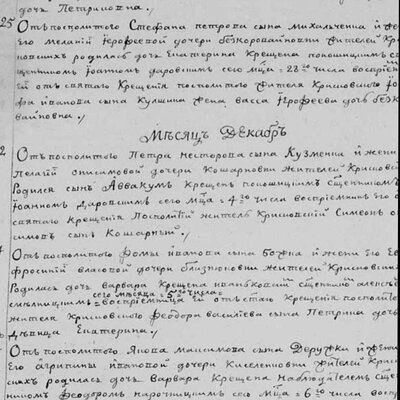 дочь Петриковна.
25 Отъ посполитого Стефана петрова сына михальченка и жени
Его Меланiи Ιерофеевой дочери безкоровайновни жителей Кри
родилась дочь Екатерина Крещена поющимъ с
щенникомъ Iоаномъ даровскимъ сего мца = 28го числа воспрiем
Ей отъ святаго Крещенiя посполитого жителя Крисковского
фа иванова сына Кулшика жена васса Iерофеева дочь безко
вайковна.
Мѣсяцъ Декабрь
2 Отъ посполитого Петра Несторова сына Кузменка и жени
Пелагiи онисимовой дочери Кошарновни жителей Крисковс
Родился сынъ Аввакумъ Крещенъ поющимъ сщенникомъ
Iоанномъ Даровскимъ сего Мца = 4го числа воспрiемникъ его о
святаго Крещенiя Посполитiй житель Крисковскiй Симеонъ о
симовъ сынъ Кошарный.
Отъ посполитого Фомы иванова сына божка и жени его Ев
фросинiи власовой дочери жителей Крисковски
Родилась дочь варвара Крещена сщенникомъ алексѣ
сего мѣсяца = 5го числа
воспрiемница Ей отъ стаго Крещенiя посполито
жителя Крисковского Феодора василiева сына Петрика дочь
Дѣвица Екатерина.
Отъ посполитого Якова Максимова сына Деружки и жени
Его агрипины ивановой дочери Кислепковни жителей Криско
родилась дочь Варвара Крещена Наблюдателемъ Сще
никомъ Феодоромъ сего Мца = 6го числа воспр